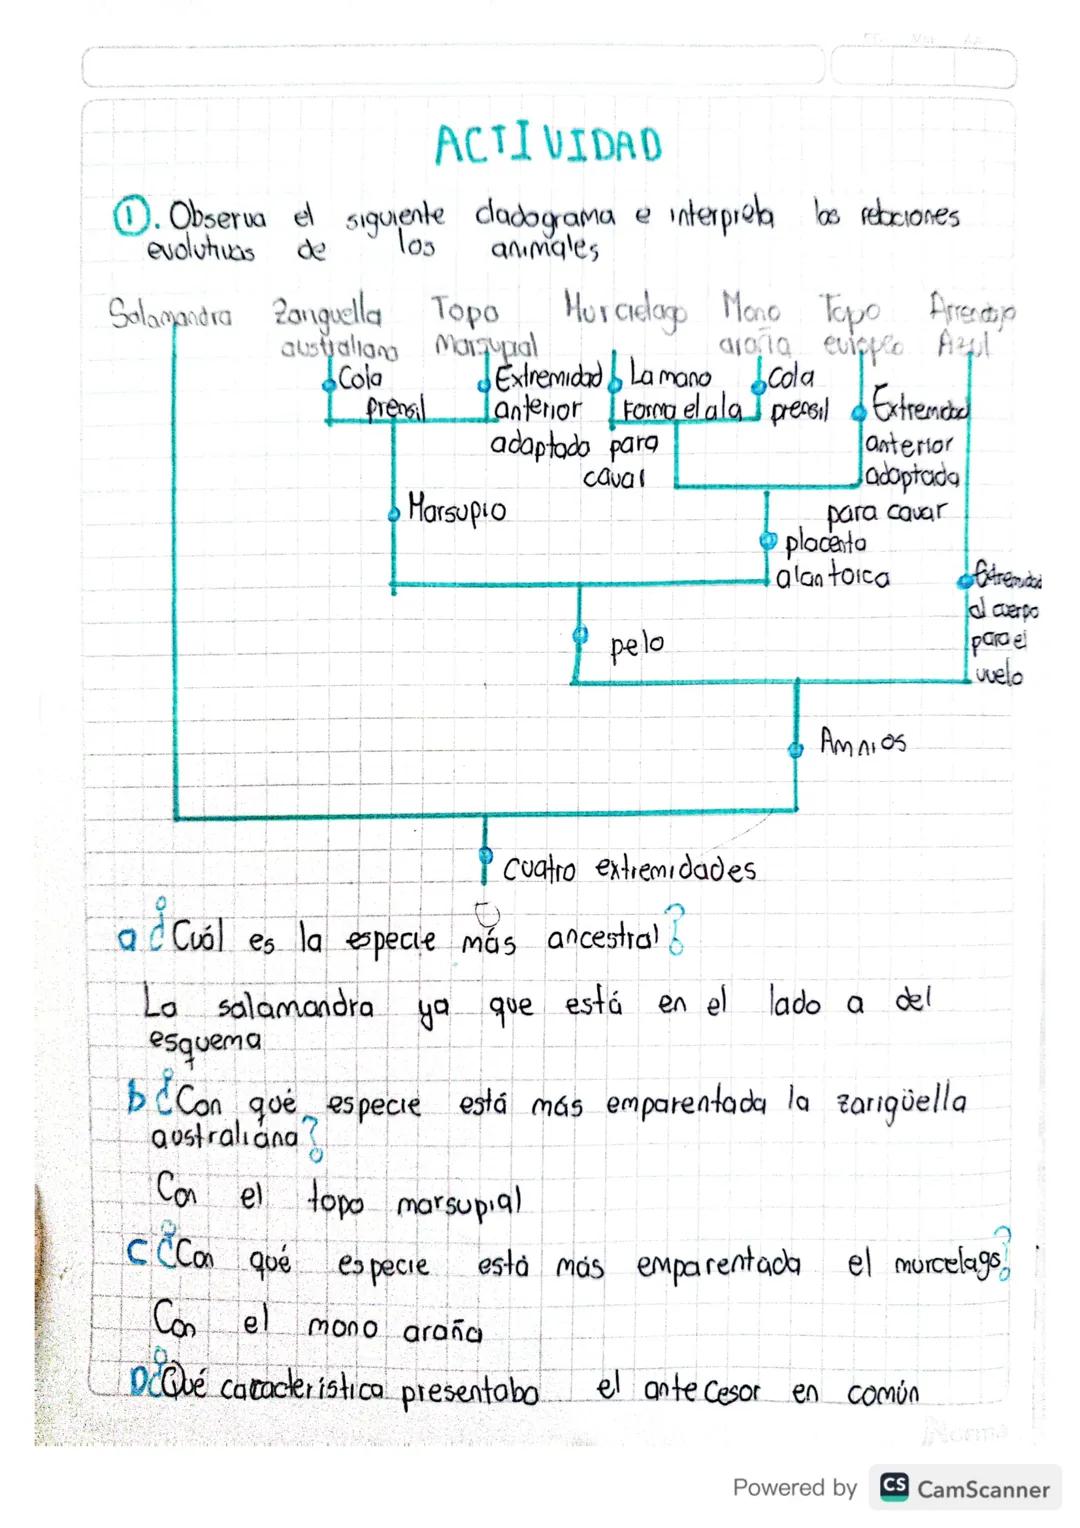 ACTIVIDAD
1. Observa el siguiente cladograma e interpreta las relaciones
evolutivas de los animales
Salamandra Zanguella Topo Murcielago Mono Topo Arrendajo
australiana Marsupial araña europeo Azul
Cola prensil
Extremidad anterior adaptado para cavar
La mano forma el ala
Cola prensil
Extremidad anterior adaptada para cavar
Marsupio
placenta alantoica
Extremidad al cuerpo para el vuelo
pelo
Amnios
cuatro extremidades
a ¿Cuál es la especie más ancestral?
La salamandra ya que está en el lado a del
esquema
b ¿Con qué especie está más emparentada la zarigüella
australiana?
Con el topo marsupial
C ¿Con qué especie está más emparentada el murcelago?
Con el mono araña
D ¿Qué característica presentaba el antecesor en común
Norma
Powered by CS CamScanner